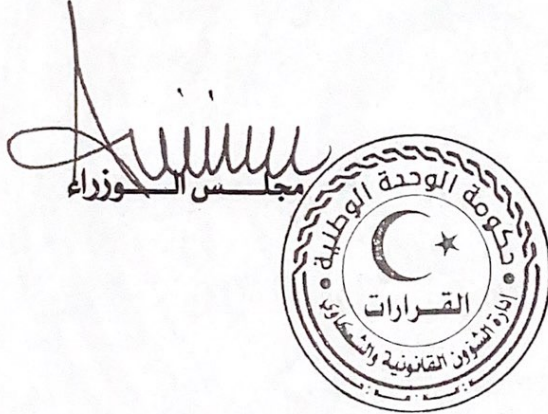 مجلس الوزراء
حكومة الوحدة الوطنية
القرارات
إدارة الشؤون القانونية والشكاوى